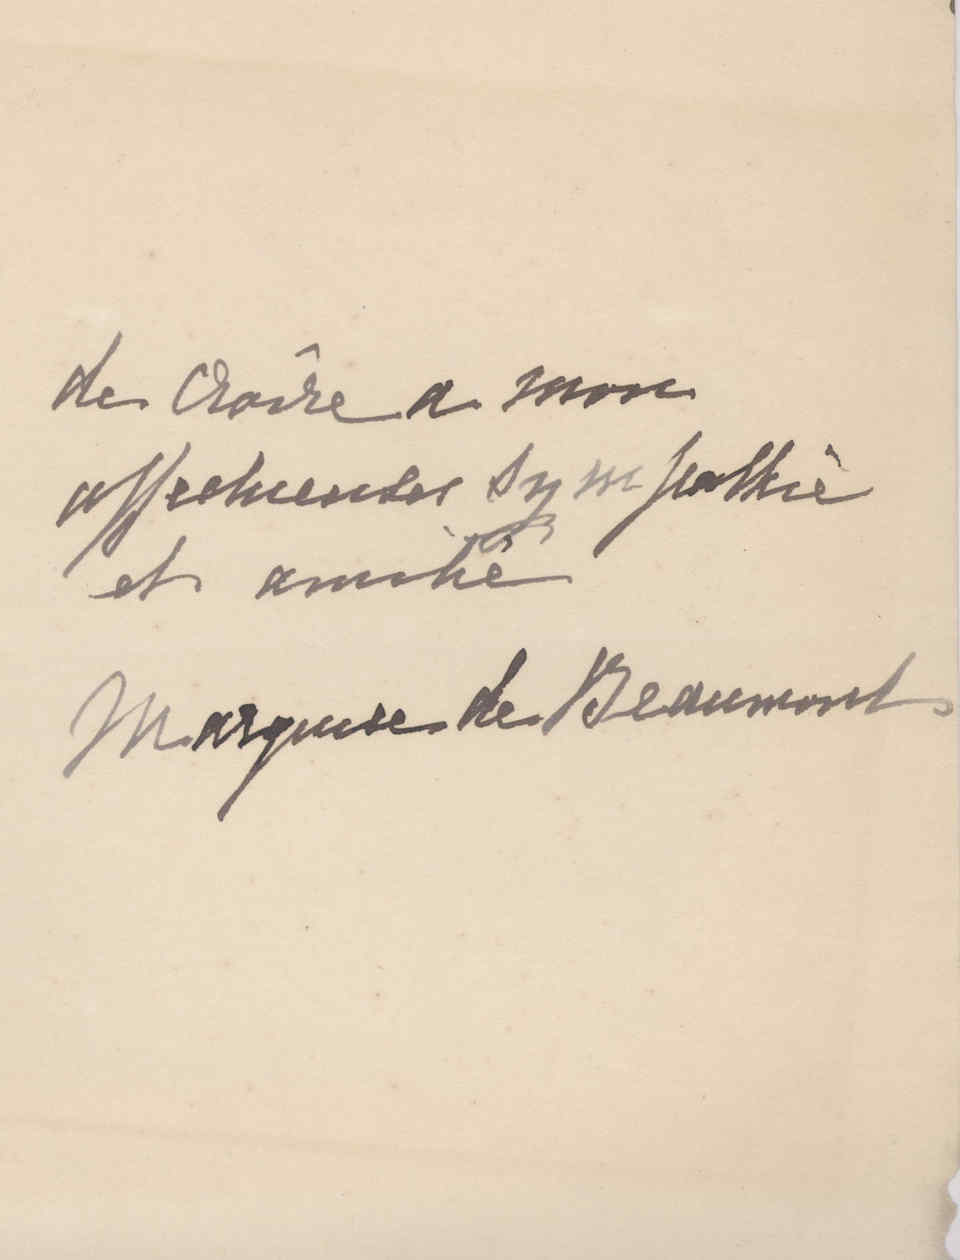 de Croire a mon
affectueuses sympathie
et amitié
Marquise de Beaumont